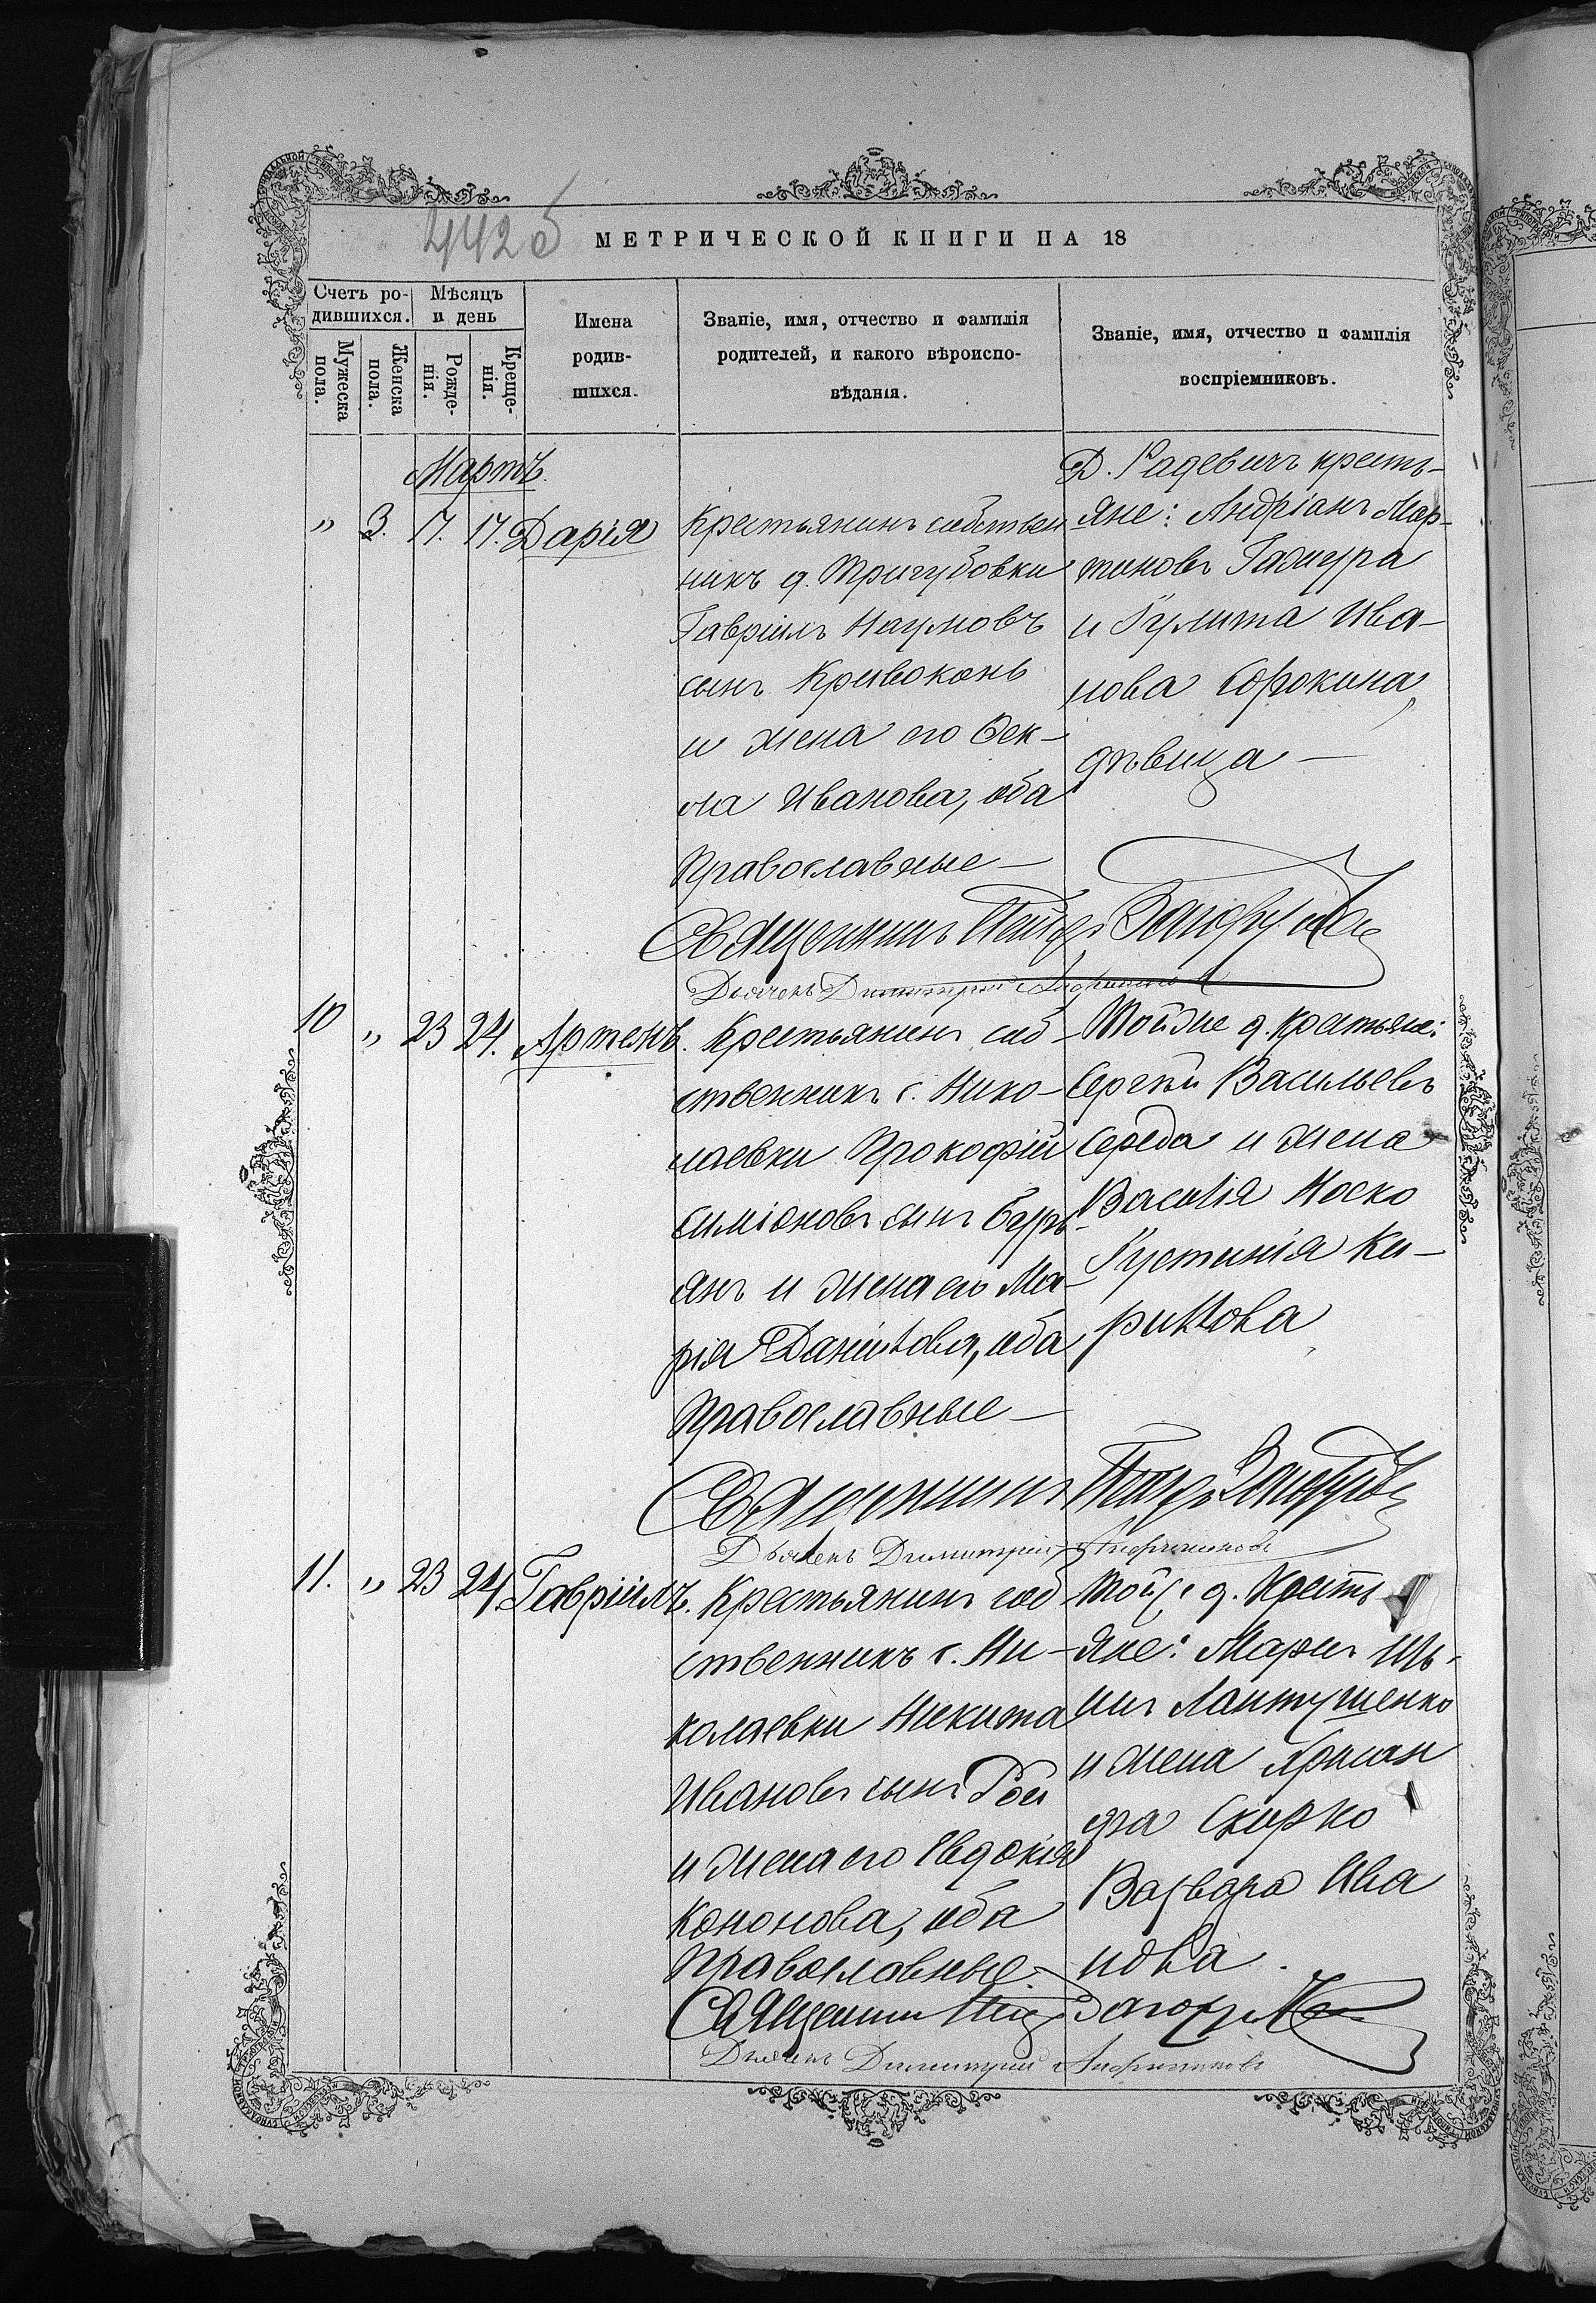 442 об
МЕТРИЧЕСКОЙ КНИГИ НА 18
Счетъ ро-
дившихся.
Мѣсяцъ
и день
Мужеска
пола.
Женска
пола.
Рожде-
нія.
Креще-
нія.
Имена
родив-
шихся.
Званіе, имя, отчество и фамилія
родителей, и какого вѣроиспо-
вѣданія.
Званіе, имя, отчество и фамилія
воспріемниковъ.
Мартъ.
" 3. 17. 17. Дарія
Крестьянинъ собствен
никъ д. Тригубовки
Гавріилъ Наумовъ
сынъ Кривоконь
и жена его Фек-
ла Иванова, оба
Православные —
Д. Радевич кресть-
яне: Андріанъ Мар-
тиновъ
и Іулита Ива-
нова Сорокина,
дѣвица —
Священникъ Петръ
Дьячекъ Димитрій
10 " 23 24. Артемъ.
Крестьянинъ соб-
ственникъ с. Нико-
лаевки Прокофій
Симіоновъ сынъ Бурь-
янъ и жена его Ма-
рія Данилова, оба
Православные —
Тойже д. крестьяне:
Сергѣй Васильевъ
Середа и жена
Василія Носко
Іустинія Ки-
рилова
Священникъ Петръ
Дьячекъ Димитрій
11. " 23 24. Гавріилъ.
Крестьянинъ соб
ственникъ с. Ни-
колаевки Никита
Ивановъ сынъ
и жена его Евдокія
Кононова, оба
Православные
Тойже д. Кресть
яне: Марко Иль-
инъ Лантушенко
и жена
Варвара Ива
нова.
Священникъ Петръ
Дьячекъ Димитрій